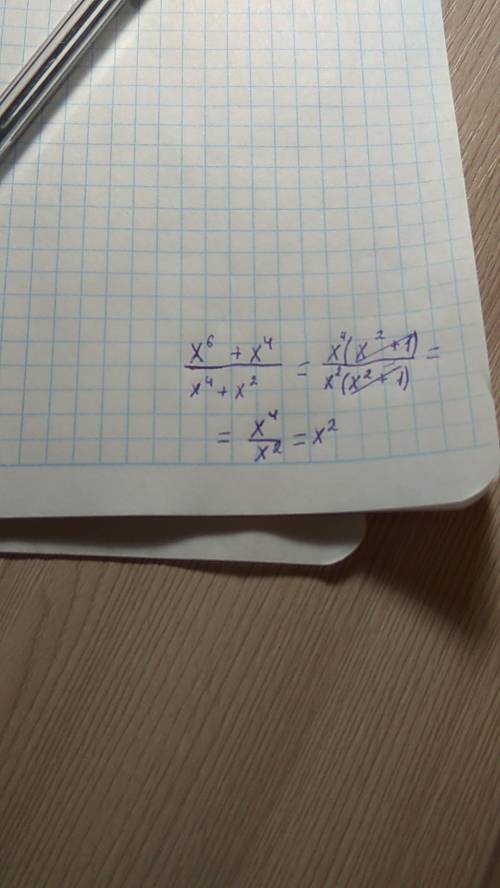 x⁶ + x⁴ / x⁴ + x² = x⁴(x² + 1) / x²(x² + 1) =
= x⁴ / x² = x²